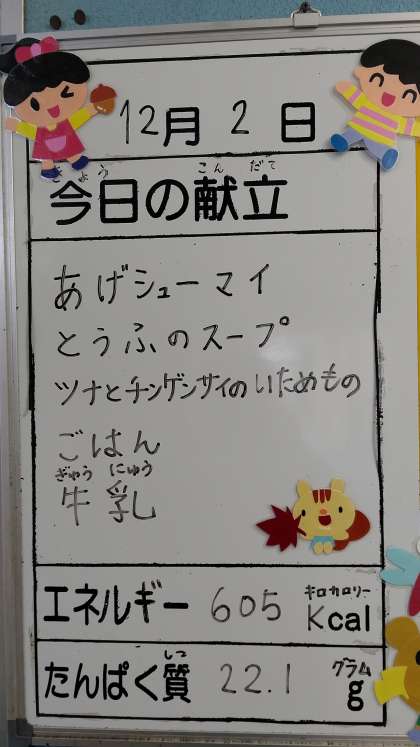 12月2日
きょう こんだて
今日の献立
あげシューマイ
とうふのスープ
ツナとチンゲンサイのいためもの
ごはん
ぎゅう にゅう
牛乳
キロカロリー
エネルギー 605 Kcal
しつ グラム
たんぱく質 22.1 g